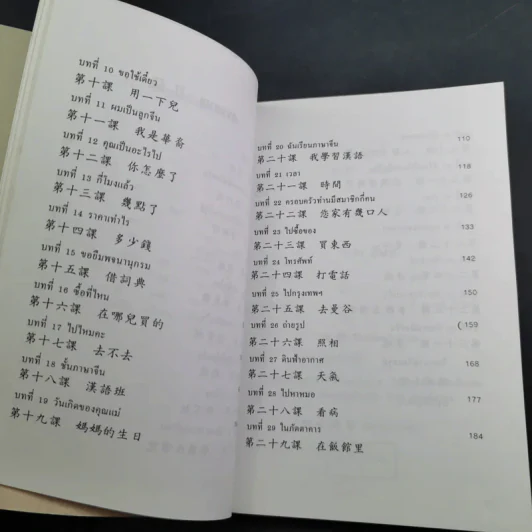 บทที่ 10 ขอใช้เดี๋ยว
第十課 用一下兒
บทที่ 11 ผมเป็นลูกจีน
第十一課 我是華裔
บทที่ 12 คุณเป็นอะไรไป
第十二課 你怎麼了
บทที่ 13 กี่โมงแล้ว
第十三課 幾點了
บทที่ 14 ราคาเท่าไร
第十四課 多少錢
บทที่ 15 ขอยืมพจนานุกรม
第十五課 借詞典
บทที่ 16 ซื้อที่ไหน
第十六課 在哪兒買的
บทที่ 17 ไปไหมคะ
第十七課 去不去
บทที่ 18 ชั้นภาษาจีน
第十八課 漢語班
บทที่ 19 วันเกิดของคุณแม่
第十九課 媽媽的生日
บทที่ 20 ฉันเรียนภาษาจีน 110
第二十課 我學習漢語
บทที่ 21 เวลา 118
第二十一課 時間
บทที่ 22 ครอบครัวท่านมีสมาชิกกี่คน 126
第二十二課 您家有幾口人
บทที่ 23 ไปซื้อของ 134
第二十三課 買東西
บทที่ 24 โทรศัพท์ 142
第二十四課 打電話
บทที่ 25 ไปกรุงเทพฯ 150
第二十五課 去曼谷
บทที่ 26 ถ่ายรูป (159
第二十六課 照相
บทที่ 27 ดินฟ้าอากาศ 168
第二十七課 天氣
บทที่ 28 ไปหาหมอ 177
第二十八課 看病
บทที่ 29 ในภัตตาคาร 184
第二十九課 在飯館里